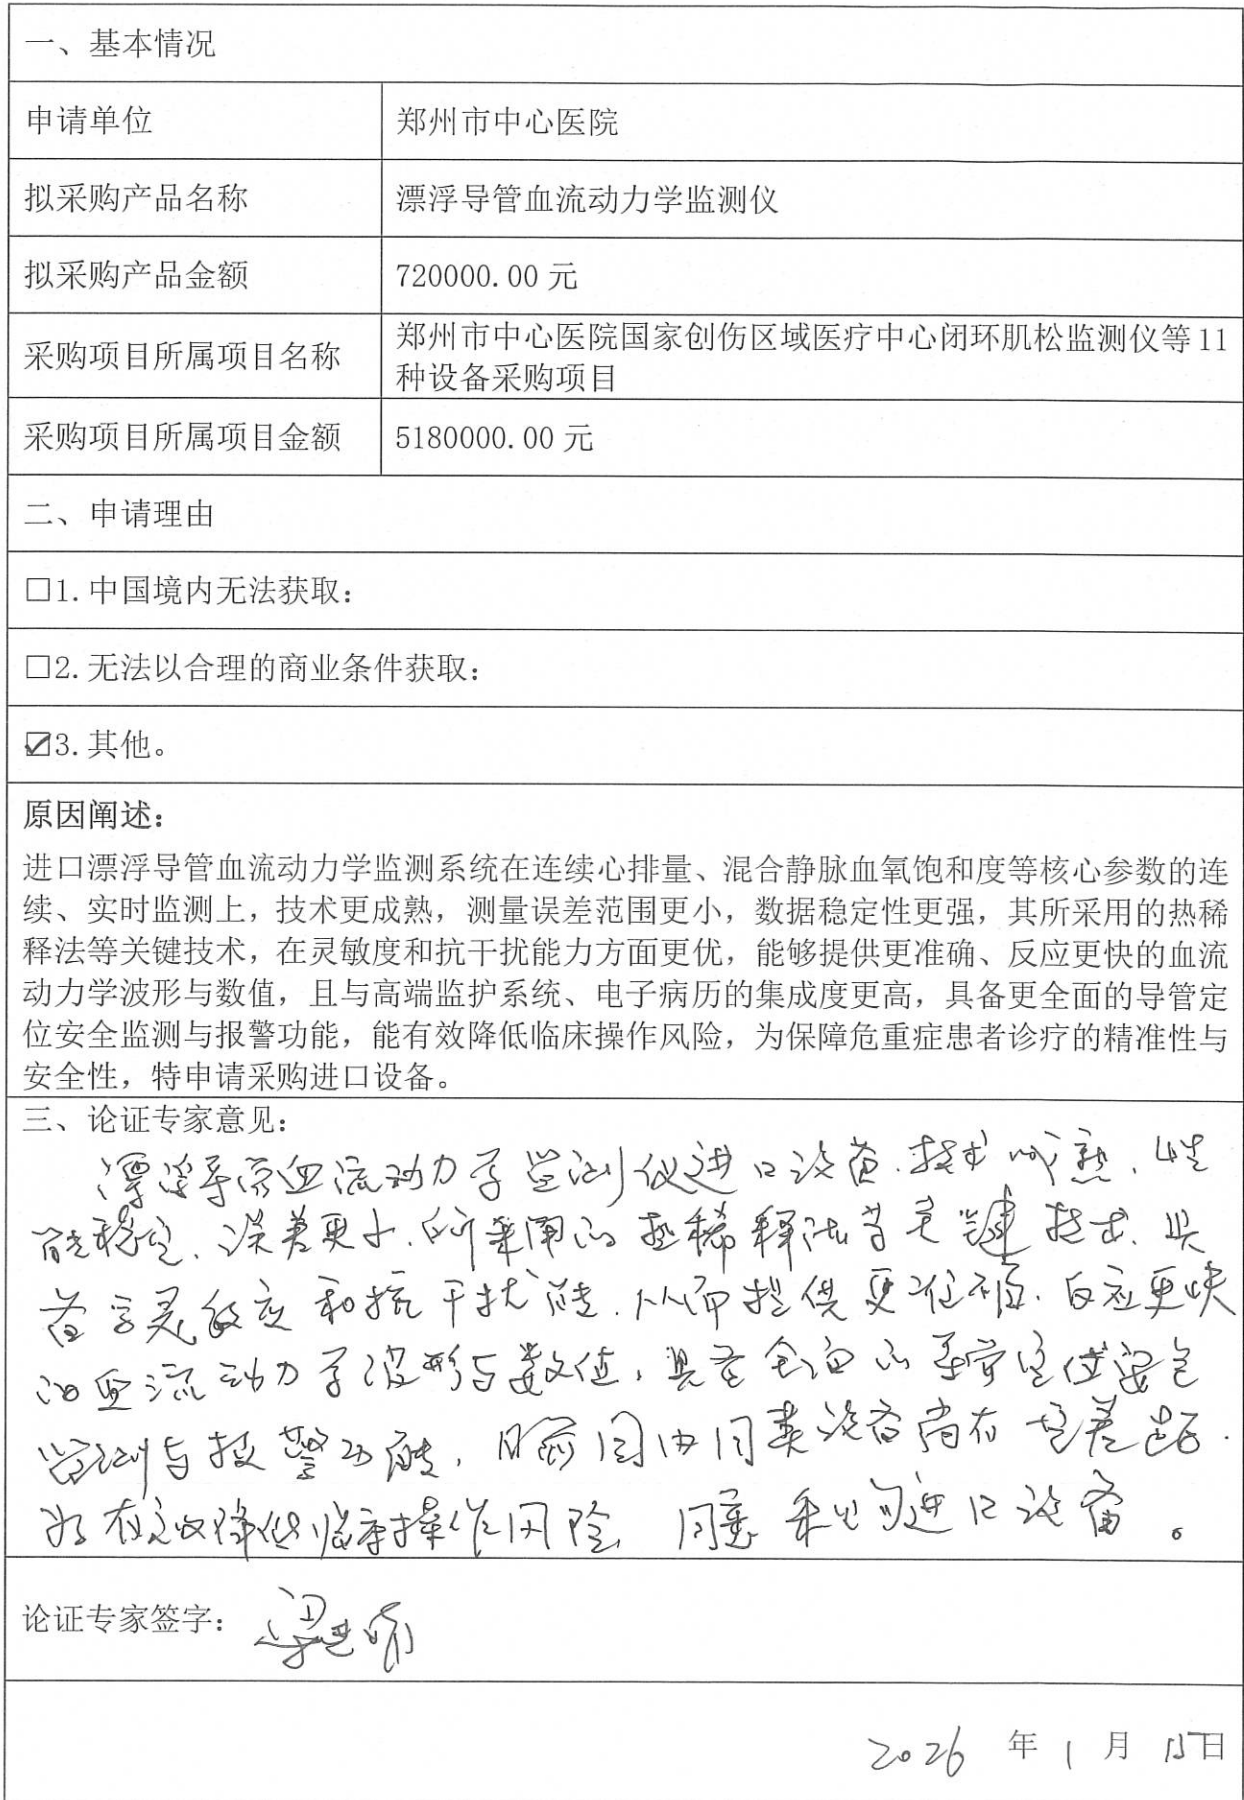 一、基本情况
申请单位
郑州市中心医院
拟采购产品名称
漂浮导管血流动力学监测仪
拟采购产品金额
720000.00 元
采购项目所属项目名称
郑州市中心医院国家创伤区域医疗中心闭环肌松监测仪等11
种设备采购项目
采购项目所属项目金额
5180000.00 元
二、申请理由
□1.中国境内无法获取：
□2.无法以合理的商业条件获取：
☑3.其他。
原因阐述：
进口漂浮导管血流动力学监测系统在连续心排量、混合静脉血氧饱和度等核心参数的连
续、实时监测上，技术更成熟，测量误差范围更小，数据稳定性更强，其所采用的热稀
释法等关键技术，在灵敏度和抗干扰能力方面更优，能够提供更准确、反应更快的血流
动力学波形与数值，且与高端监护系统、电子病历的集成度更高，具备更全面的导管定
位安全监测与报警功能，能有效降低临床操作风险，为保障危重症患者诊疗的精准性与
安全性，特申请采购进口设备。
三、论证专家意见：
漂浮导管血流动力学监测仪进口设备，技术成熟，性
能稳定，误差更小，所采用的热稀释法等关键技术，具
备高灵敏度和抗干扰能，从而提供更准确，反应更快
的血流动力学波形与数值，具备全面的导管定位安全
监测与报警功能，目前国内同类设备尚有差距，
为有效降低临床操作风险，同意采购进口设备。
论证专家签字：
2026 年 1 月 15日